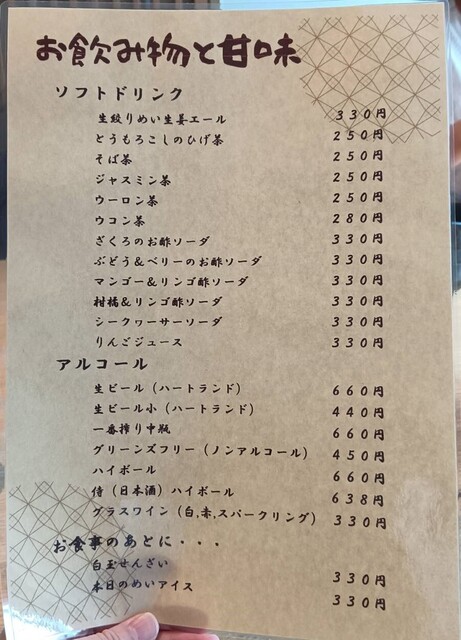 お飲み物と甘味
ソフトドリンク
生絞りめい生姜エール 330円
とうもろこしのひげ茶 250円
そば茶 250円
ジャスミン茶 250円
ウーロン茶 250円
ウコン茶 280円
ざくろのお酢ソーダ 330円
ぶどう&ベリーのお酢ソーダ 330円
マンゴー&リンゴ酢ソーダ 330円
柑橘&リンゴ酢ソーダ 330円
シークヮーサーソーダ 330円
りんごジュース 330円
アルコール
生ビール(ハートランド) 660円
生ビール小(ハートランド) 440円
一番搾り中瓶 660円
グリーンズフリー(ノンアルコール) 450円
ハイボール 660円
侍(日本酒)ハイボール 638円
グラスワイン(白,赤,スパークリング) 330円
お食事のあとに・・・
白玉せんざい 330円
本日のめいアイス 330円